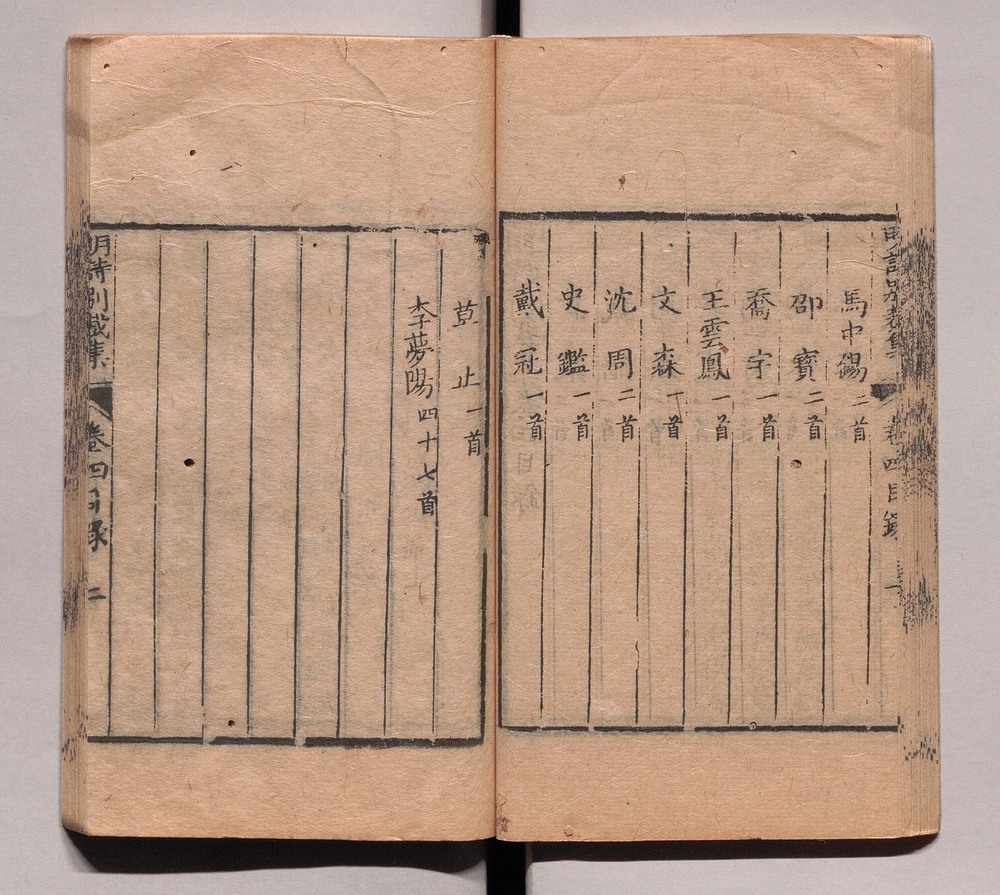 明詩別裁集 卷四目錄
馬中錫二首
邵寶二首
喬宇一首
王雲鳳一首
文森一首
沈周二首
史鑑一首
戴冠一首
莫止一首
李夢陽四十七首
明詩別裁集 卷四目錄 二